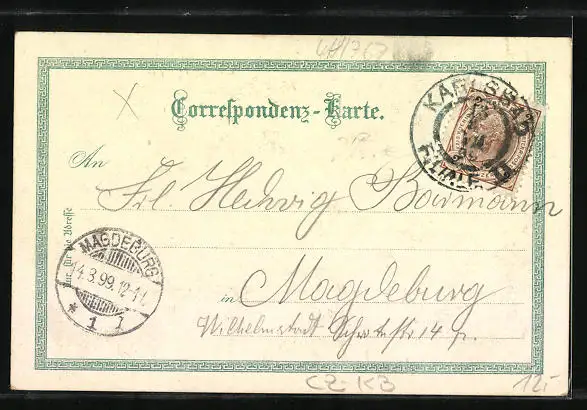 Correspondenz-Karte.
KARLSBAD
An
Frl. Hedwig Baumann
Nur für die Adresse
MAGDEBURG
14.3.99.
* 1
in Magdeburg
Wilhelmstadt 14
CZ-KB
12,-